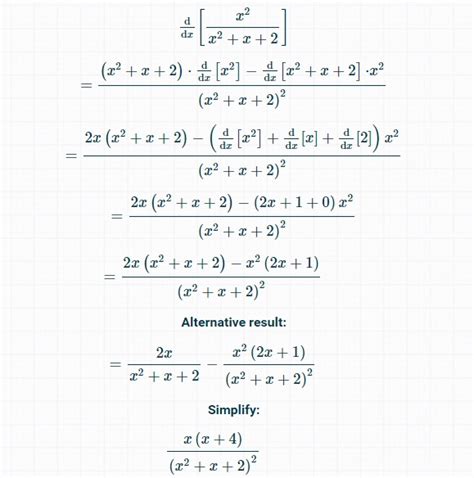 d/dx [ x² / (x² + x + 2) ]
= ( (x² + x + 2) · d/dx [x²] − d/dx [x² + x + 2] · x² ) / (x² + x + 2)²
= ( 2x (x² + x + 2) − ( d/dx [x²] + d/dx [x] + d/dx [2] ) x² ) / (x² + x + 2)²
= ( 2x (x² + x + 2) − (2x + 1 + 0) x² ) / (x² + x + 2)²
= ( 2x (x² + x + 2) − x² (2x + 1) ) / (x² + x + 2)²
Alternative result:
= 2x / (x² + x + 2) − x² (2x + 1) / (x² + x + 2)²
Simplify:
x (x + 4) / (x² + x + 2)²